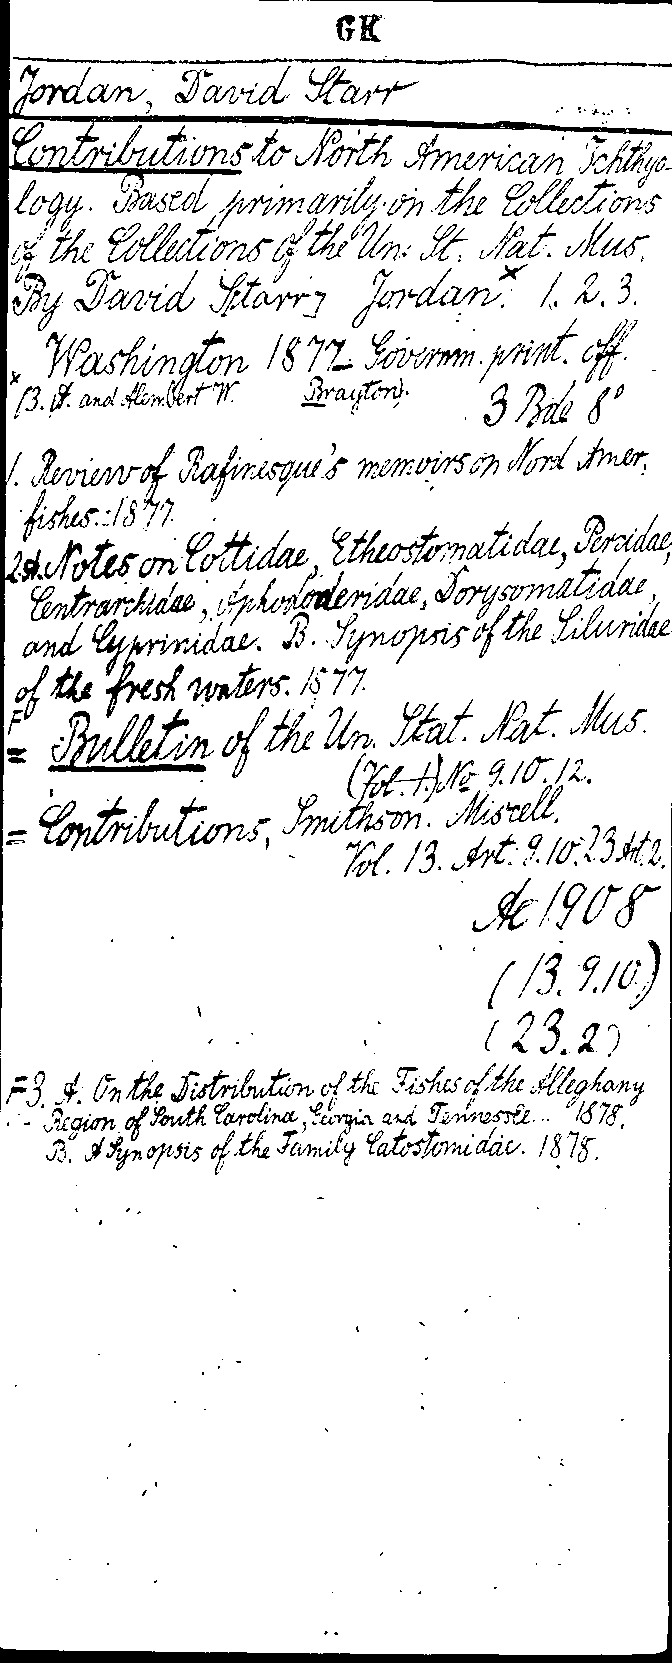 GK
Jordan, David Starr
Contributions to North American Ichthyo-
logy. Based primarily on the Collections
of the Collections of the Un. St. Nat. Mus.
By David S[tarr] Jordan.× 1. 2. 3.
Washington 1877 Governm. print. off.
× (3. A. and Alembert W. Brayton).
3 Bde 8°
1. Review of Rafinesque's memoirs on Nord Amer.
fishes. 1877.
2. A. Notes on Cottidae, Etheostomatidae, Percidae,
Centrarchidae, Aphododeridae, Dorysomatidae,
and Cyprinidae. B. Synopsis of the Siluridae
of the fresh waters. 1877.
F
= Bulletin of the Un. Stat. Nat. Mus.
(Vol. 1.) No 9. 10. 12.
= Contributions, Smithson. Miscell.
Vol. 13. Art. 9. 10. 23 Art. 2.
Ac 1908
(13. 9. 10)
(23. 2)
F 3. A. On the Distribution of the Fishes of the Alleghany
Region of South Carolina, Georgia and Tennessee... 1878.
B. A Synopsis of the Family Catostomidae. 1878.